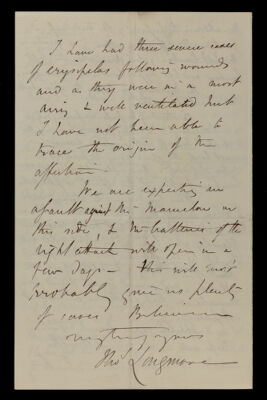 I have had three severe cases
of erysipelas following wounds
and as they were in a most
airy & well ventilated hut
I have not been able to
trace the origin of the
affection.
We are expecting an
assault against the Mamelon on
this side, & the batteries of the
right attack will open in a
few days – this will most
probably give us plenty
of cases Believe me
yours
Tho Longmore